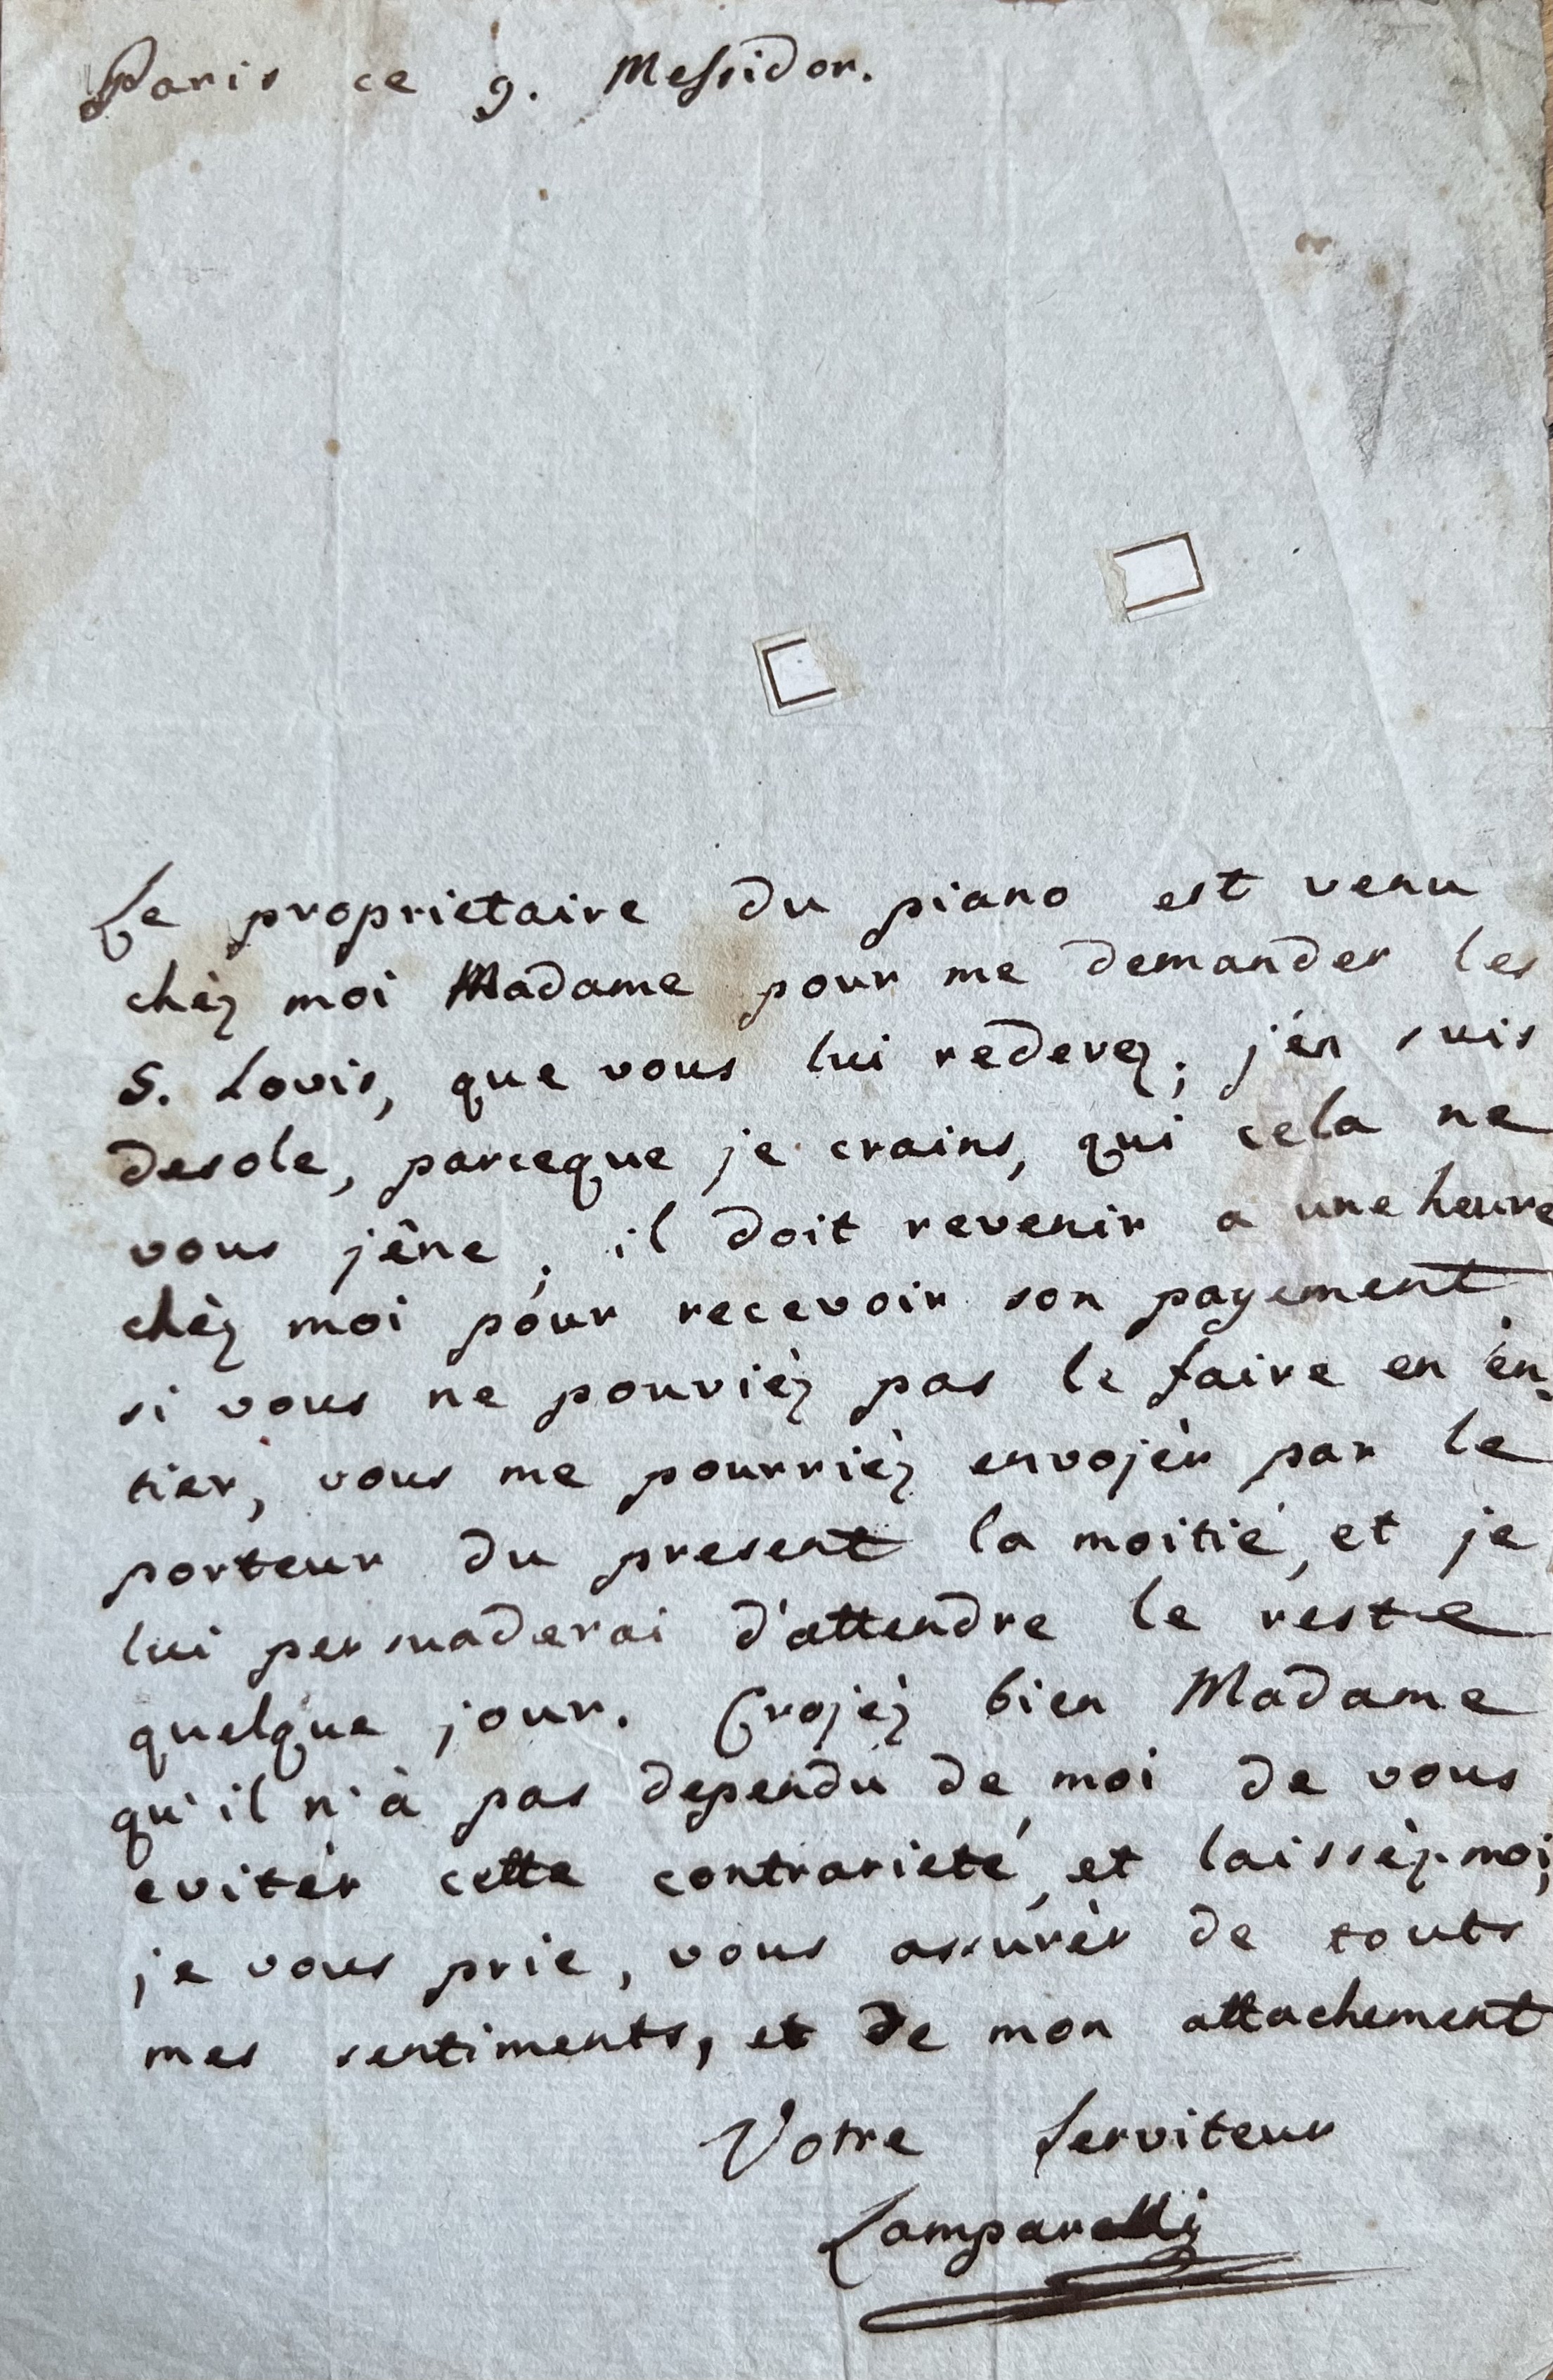 Paris ce 9. Messidor.
Le proprietaire du piano est venu
chèz moi Madame pour me demander les
5. Lovis, que vous lui redevez; j'én suis
desole, parceque je crains, qui cela ne
vous jêne; il doit revenir a une heure
chèz moi pour recevoir son payement.
si vous ne pouvièz pas le faire en en-
tier, vous me pourrièz envojèr par le
porteur du present la moitié, et je
lui persuaderai d'attendre le reste
quelque jour. Crojèz bien Madame
qu'il n'à pas dependu de moi de vous
evitèr cette contrarieté, et laissèz-moi,
je vous prie, vous assurèr de touts
mes sentiments, et de mon attachement
Votre Serviteur
Lamparelli